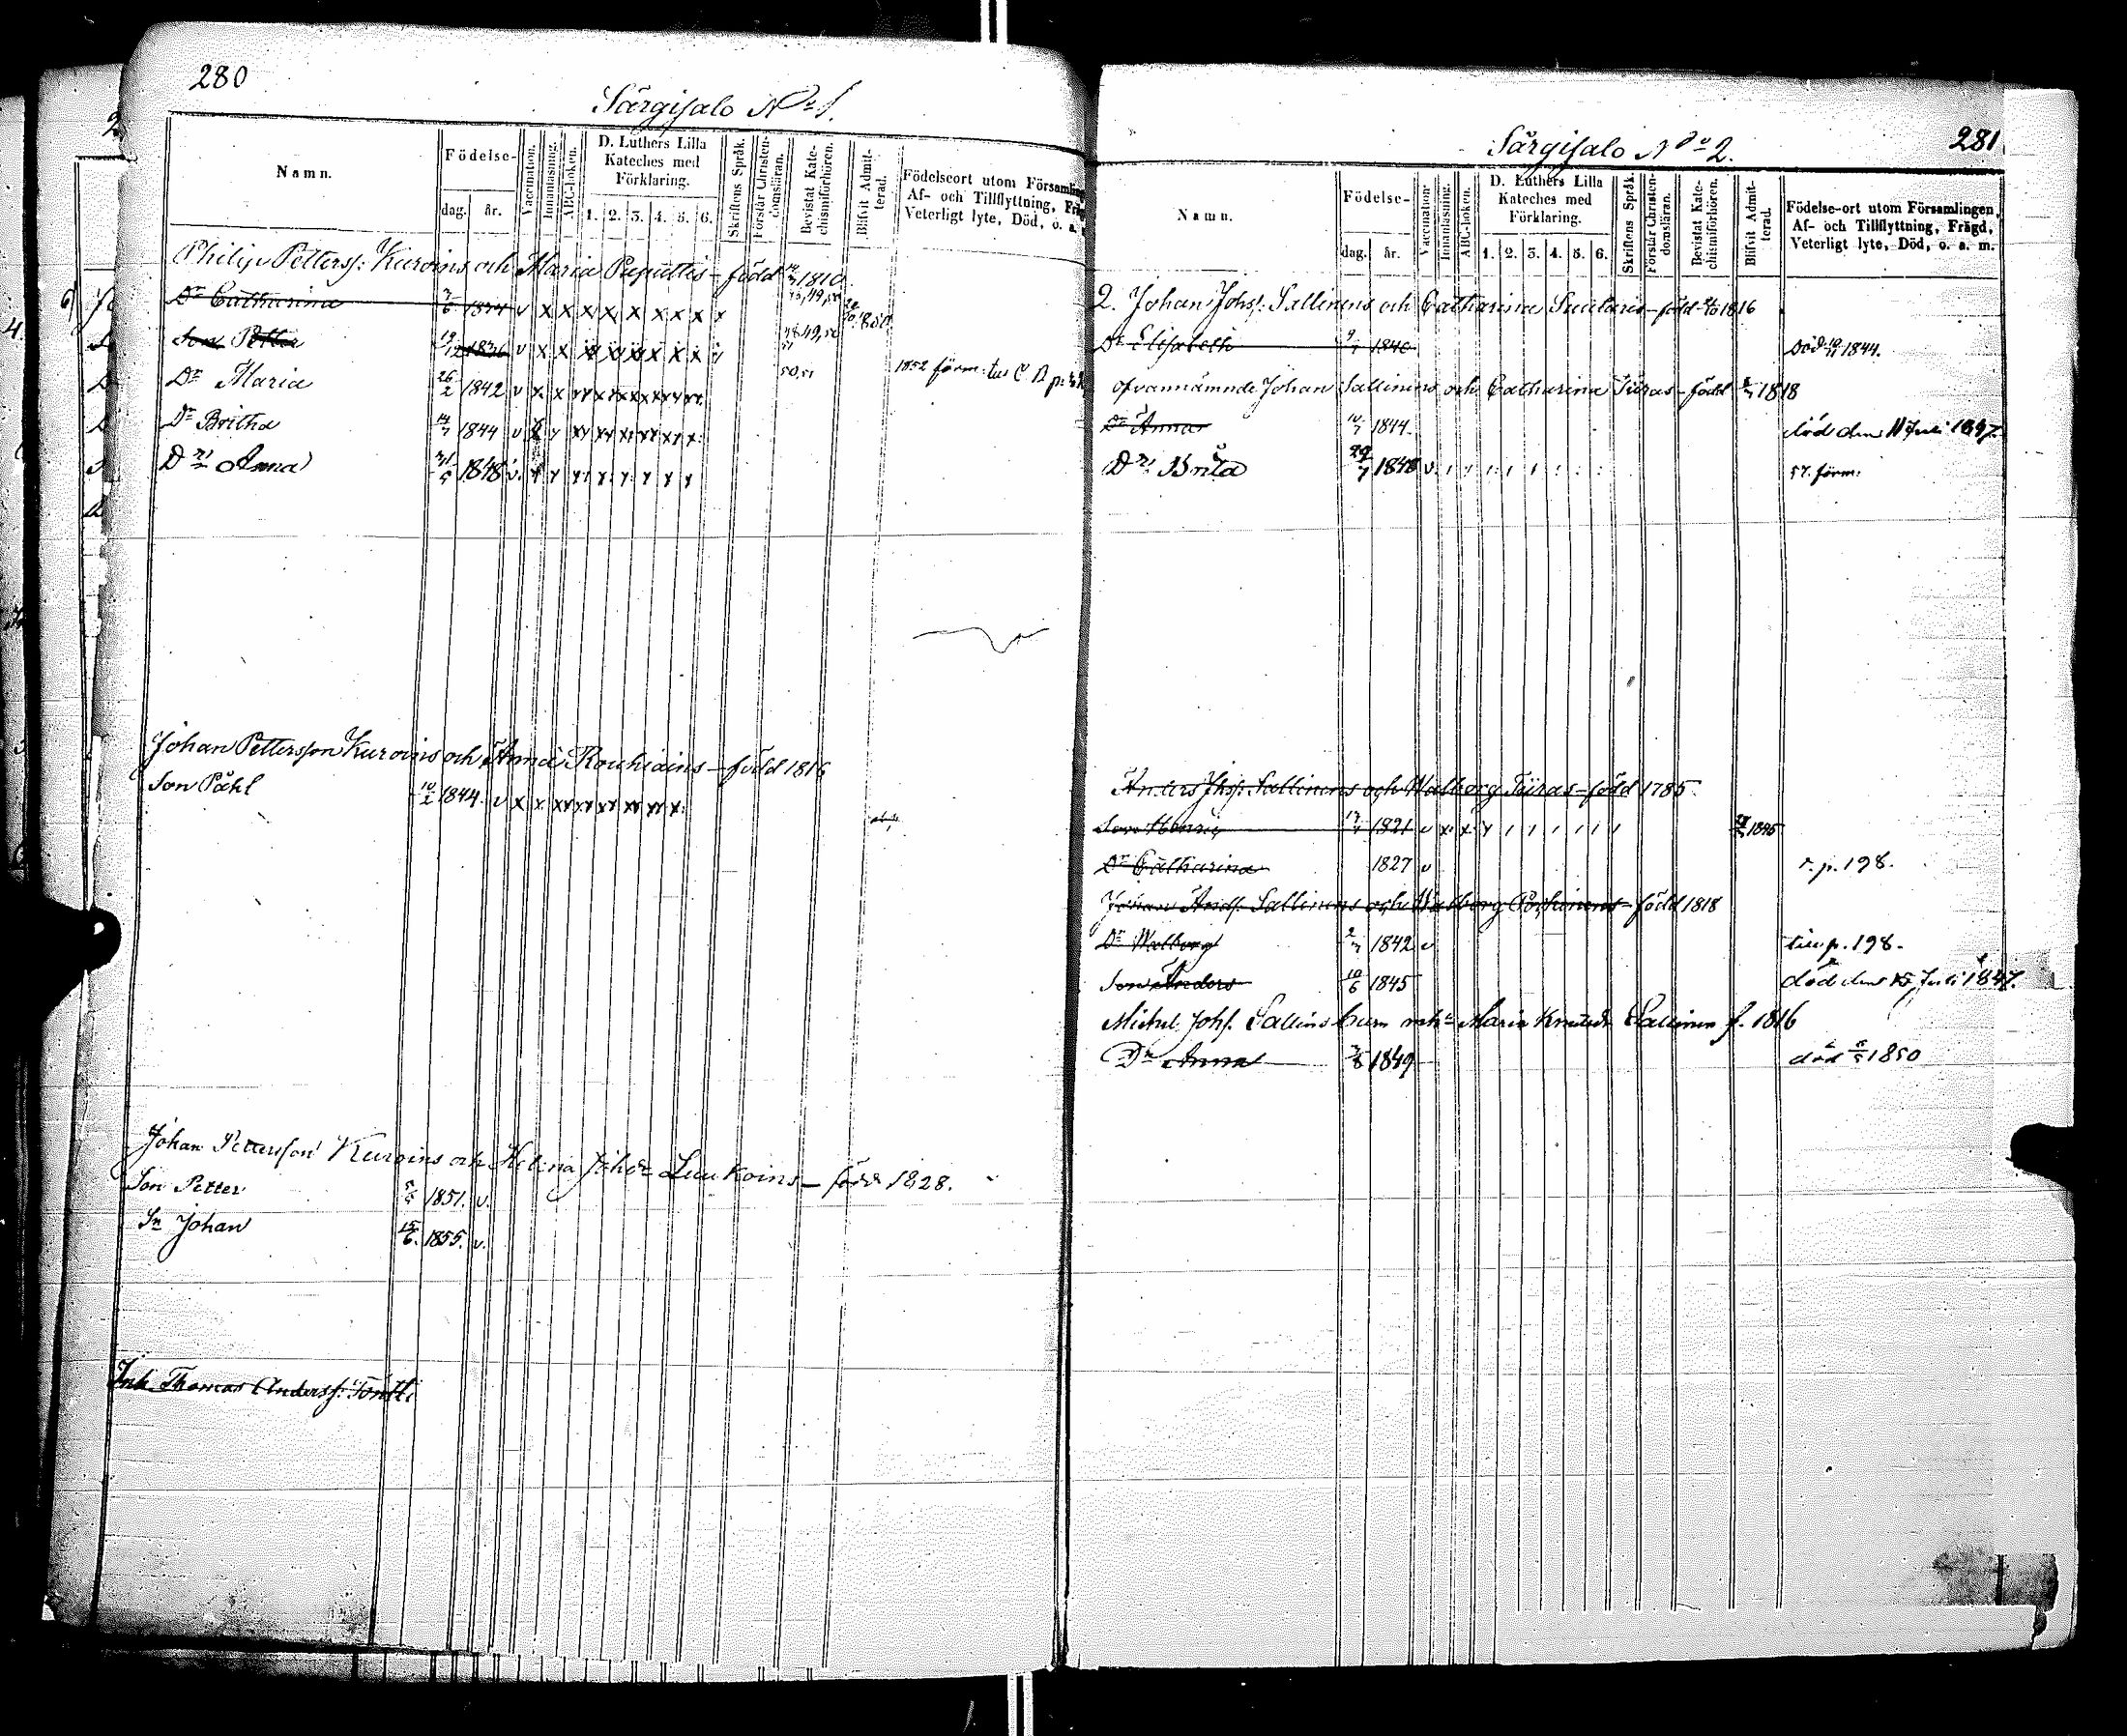 280
Särgisalo No 1.
Namn.
Födelse-
dag. år.
Vaccination.
Innanläsning.
ABC-boken.
D. Luthers Lilla Kateches med Förklaring.
1. 2. 3. 4. 5. 6.
Skriftens Språk.
Förstår Christendomsläran.
Bevistat Katechismiförhören.
Blifvit Admitterad.
Födelseort utom Församling
Af- och Tillflyttning, Fräg
Veterligt lyte, Död, o. a.
Philip Petterss: Kuroins och Maria Puputtis - född 1810
Dr Catharina 1834 v x x x x x x x x x 1850
Son Petter 1836 v x x x x x x x x 49, 50
Dr Maria 26/2 1842 v x x 50, 51 1852 förm:
Dr Britha 1844 v
Dr Anna 1848 v.
Johan Pettersson Kuroins och Anna Rouhiains - född 1816
Son Påhl 10/2 1844. v x x
Johan Pettersson Kuroins och Helena Leukoins - född 1828.
Son Petter 1851. v.
Sn Johan 15/6. 1855. v.
Inh. Thomas Anderss: Tontti
281
Särgisalo No 2.
Namn.
Födelse-
dag. år.
Vaccination.
Innanläsning.
ABC-boken.
D. Luthers Lilla Kateches med Förklaring.
1. 2. 3. 4. 5. 6.
Skriftens Språk.
Förstår Christendomsläran.
Bevistat Katechismiförhören.
Blifvit Admitterad.
Födelse-ort utom Församlingen,
Af- och Tillflyttning, Frägd,
Veterligt lyte, Död, o. a. m.
2. Johan Johss: Sallinens och Catharina - född 1816
Dr Elisabeth 1840 Död 1844.
ofvannämnde Johan Sallinens och Catharina Tiiras - född 1818
Dr Anna 10/7 1844. död den 11 Juli 1847.
Dr Brita 29/7 1848 v. 57. förm:
Anders Johss: Sallinens och Walborg Tiiras - född 1785.
Son Henric 17/1 1821 v x x 1845
Dr Catharina 1827 v r. p. 198.
Johan Ands: Sallinens och Walborg - född 1818
Dr Walborg 1842 v till p. 198.
Son Anders 10/6 1845 död den Juli 1847.
Michel Johs. Sallins Maria Sallinen f. 1816
Dr Anna 1849 död 1850